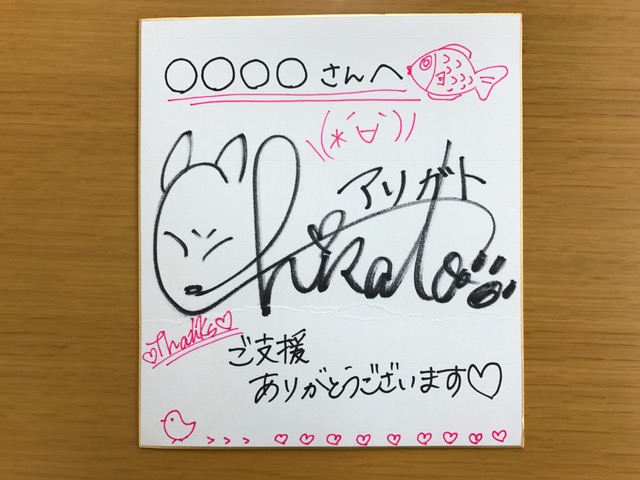 〇〇〇〇さんへ
\(*´∀`)/
アリガト
Chikato
Thanks
ご支援
ありがとうございます♡